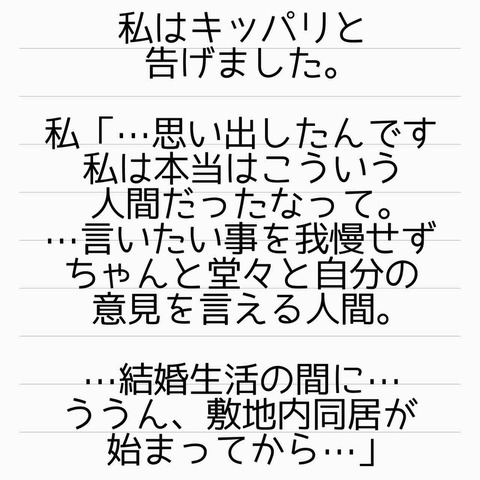 私はキッパリと
告げました。
私「…思い出したんです
私は本当はこういう
人間だったなって。
…言いたい事を我慢せず
ちゃんと堂々と自分の
意見を言える人間。
…結婚生活の間に…
ううん、敷地内同居が
始まってから…」